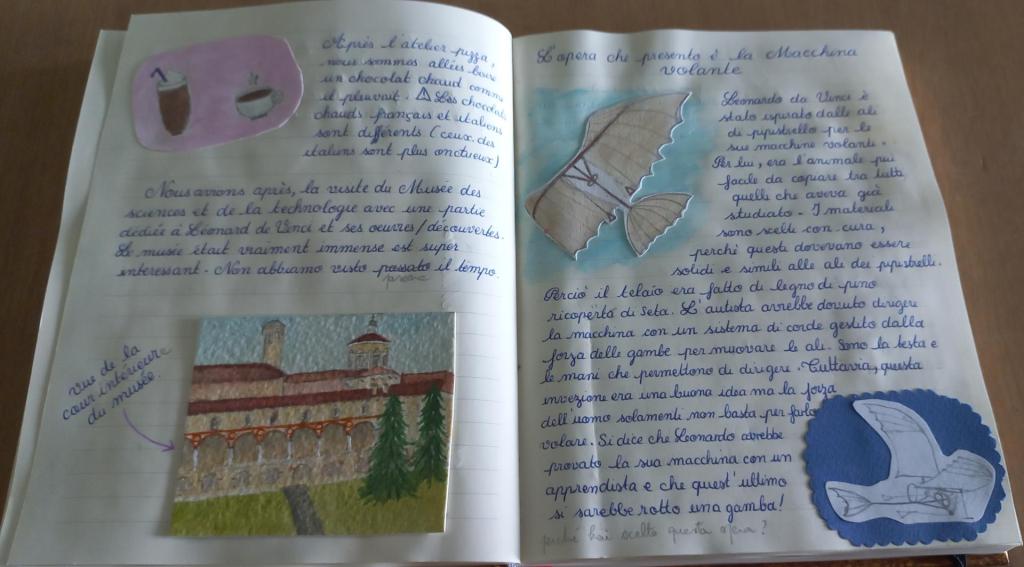 Après l'atelier pizza,
nous sommes allées boire
un chocolat chaud comme
il pleuvait. ⚠ Les chocolats
chauds français et italiens
sont différents (ceux des
italiens sont plus onctueux)
Nous avons après, la visite du Musée des
sciences et de la technologie avec une partie
dédiée à Léonard de Vinci et ses oeuvres/découvertes.
Le musée était vraiment immense est super
interessant. Non abbiamo visto passato il tempo.
vue de la
cour intérieure
du musée.
L'opera che presento è la Macchina
volante
Leonardo da Vinci è
stato ispirato dalle ali
di pipistrello per le
sue macchine volanti.
Per lui, era l'animale più
facile da copiare tra tutti
quelli che aveva già
studiato. I materiali
sono scelti con cura,
perché questi dovevano essere
solidi e simili alle ali dei pipistrelli.
Perciò il telaio era fatto di legno di pino
ricoperta di seta. L'autista avrebbe dovuto dirigere
la macchina con un sistema di corde gestito dalla
forza delle gambe per muovare le ali. Sono la testa e
le mani che permettono di dirigere. Tuttavia, questa
invezione era una buona idea ma la forza
dell'uomo solamenti non basta per farlo
volare. Si dice che Leonardo avrebbe
provato la sua macchina con un
apprendista e che quest'ultimo
si sarebbe rotto una gamba!
perché hai scelto questa opera?